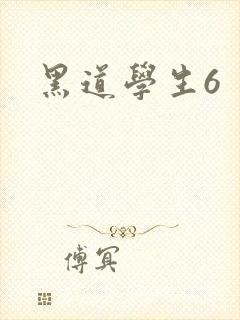 黑道學生6
傅冥